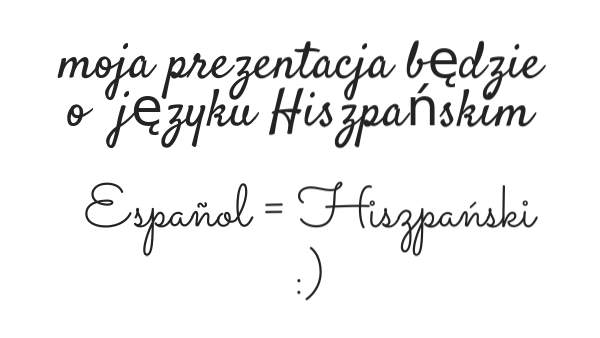 moja prezentacja będzie
o języku Hiszpańskim
Español = Hiszpański
:)